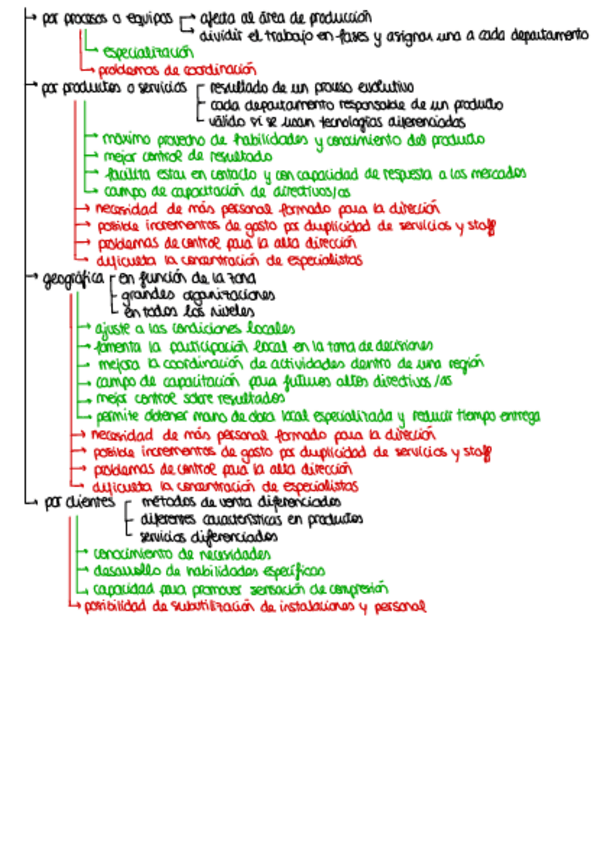 por procesos o equipos afecta al área de producción
dividir el trabajo en fases y asignar una a cada departamento
especialización
problemas de coordinación
por productos o servicios resultado de un proceso evolutivo
cada departamento responsable de un producto
válido si se usan tecnologías diferenciadas
máximo provecho de habilidades y conocimiento del producto
mejor control de resultado
facilita estar en contacto y con capacidad de respuesta a los mercados
campo de capacitación de directivos/as
necesidad de más personal formado para la dirección
posible incrementos de gasto por duplicidad de servicios y staff
problemas de control para la alta dirección
dificulta la concentración de especialistas
geográfica en función de la zona
grandes organizaciones
en todos los niveles
ajuste a las condiciones locales
fomenta la participación local en la toma de decisiones
mejora la coordinación de actividades dentro de una región
campo de capacitación para futuros altos directivos/as
mejor control sobre resultados
permite obtener mano de obra local especializada y reducir tiempo entrega
necesidad de más personal formado para la dirección
posible incrementos de gasto por duplicidad de servicios y staff
problemas de control para la alta dirección
dificulta la concentración de especialistas
por clientes métodos de venta diferenciados
diferentes características en productos
servicios diferenciados
conocimiento de necesidades
desarrollo de habilidades específicas
capacidad para promover sensación de compresión
posibilidad de subutilización de instalaciones y personal